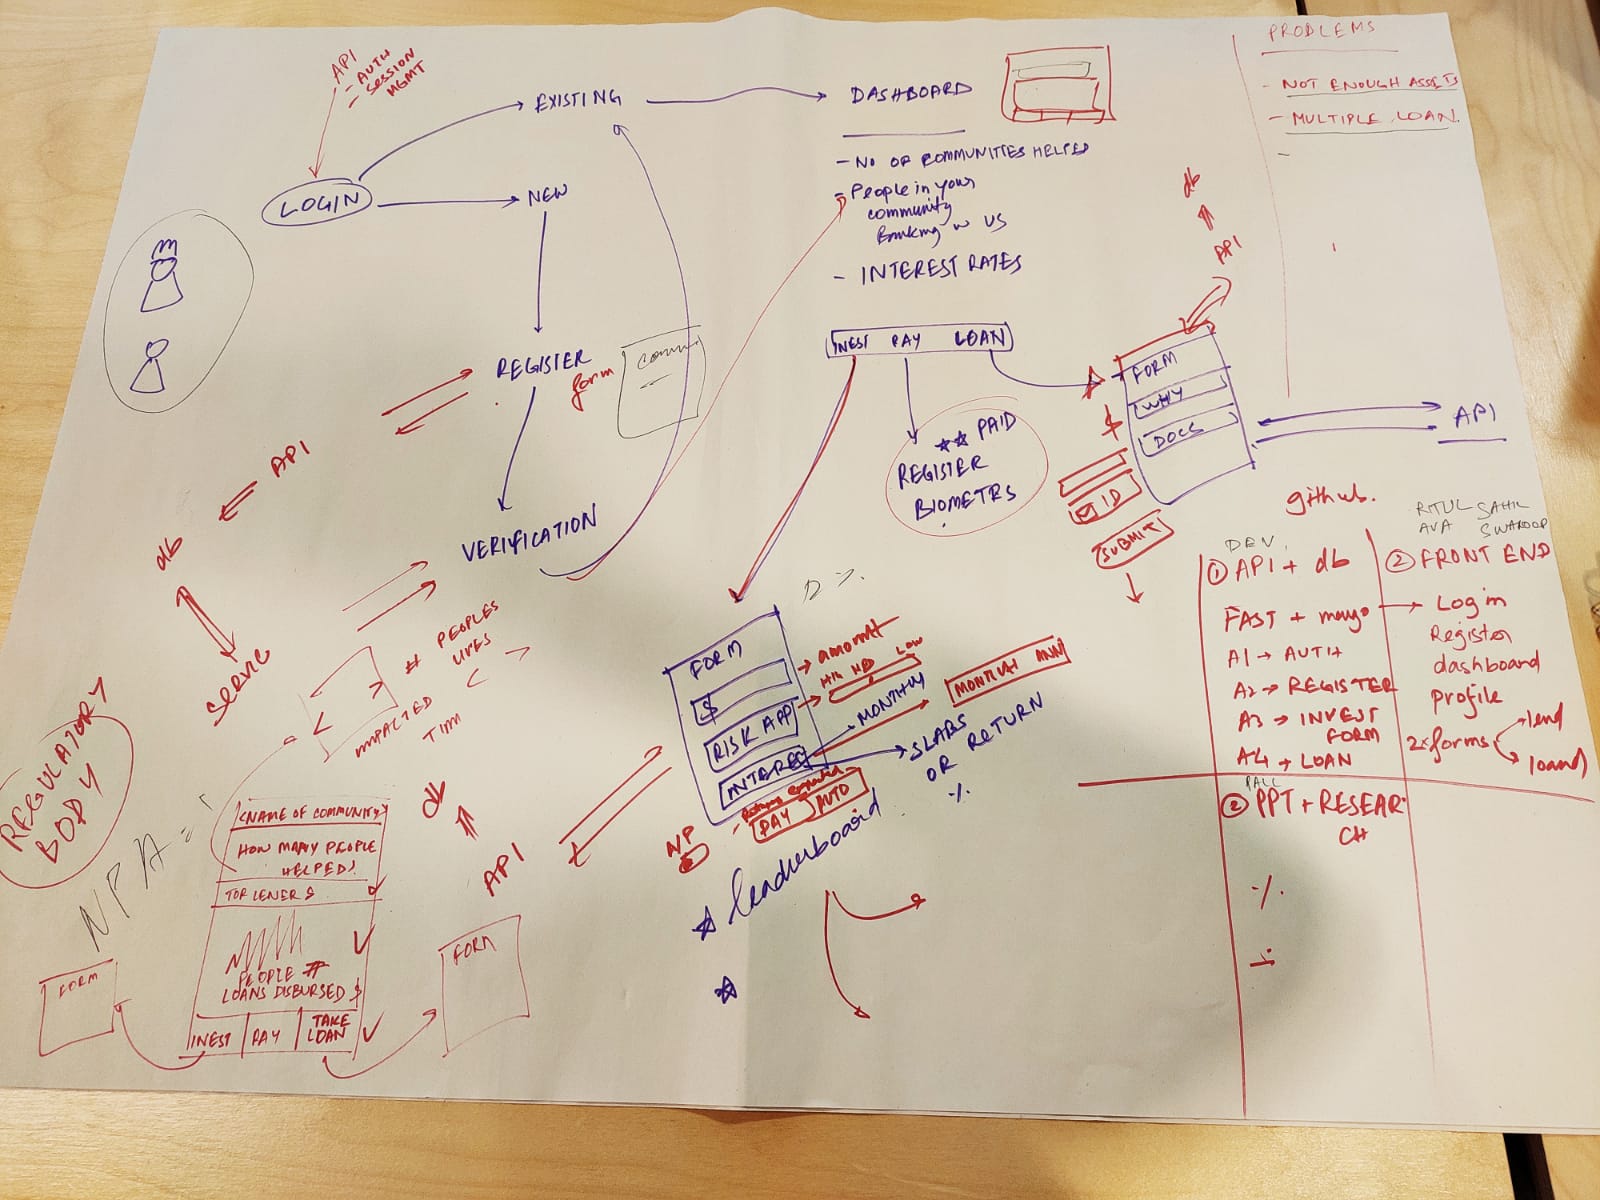 API
- AUTH
- SESSION
MGMT
LOGIN
EXISTING
NEW
REGISTER
form
VERIFICATION
DASHBOARD
- NO OF COMMUNITIES HELPED
- People in your
community
Banking w US
- INTEREST RATES
INEST PAY LOAN
PAID
REGISTER
BIOMETRS
db
API
FORM
WHY
DOCS
$
ID
SUBMIT
API
PROBLEMS
- NOT ENOUGH ASSETS
- MULTIPLE LOAN.
-
github.
DEV
① API + db
FAST + mongo
A1 → AUTH
A2 → REGISTER
A3 → INVEST
FORM
A4 → LOAN
RITUL SAHIL
AVA SWAROOP
② FRONT END
Login
Register
dashboard
profile
2 forms
lend
loand
② PPT + RESEAR
CH
%
API
db
Service
REGULATORY
BODY
NPA
# PEOPLES
LIVES
IMPACTED
TIM
< >
%
FORM
$
RISK APP
INTERES
amount
HIG MED LOW
MONTHLY
MONTHLY ANN
SLABS
OR RETURN
%
PAY AUTO
N/P
leaderboard
API
db
FORM
FORM
<NAME OF COMMUNITY>
HOW MANY PEOPLE
HELPED!
TOP LENERS
PEOPLE #
LOANS DISBURSED $
INEST PAY TAKE
LOAN